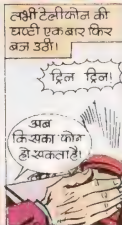 तभी टेलीफोन की
घण्टी एक बार फिर
बज उठी।
ट्रिन ट्रिन।
अब
किसका फोन
हो सकता है!